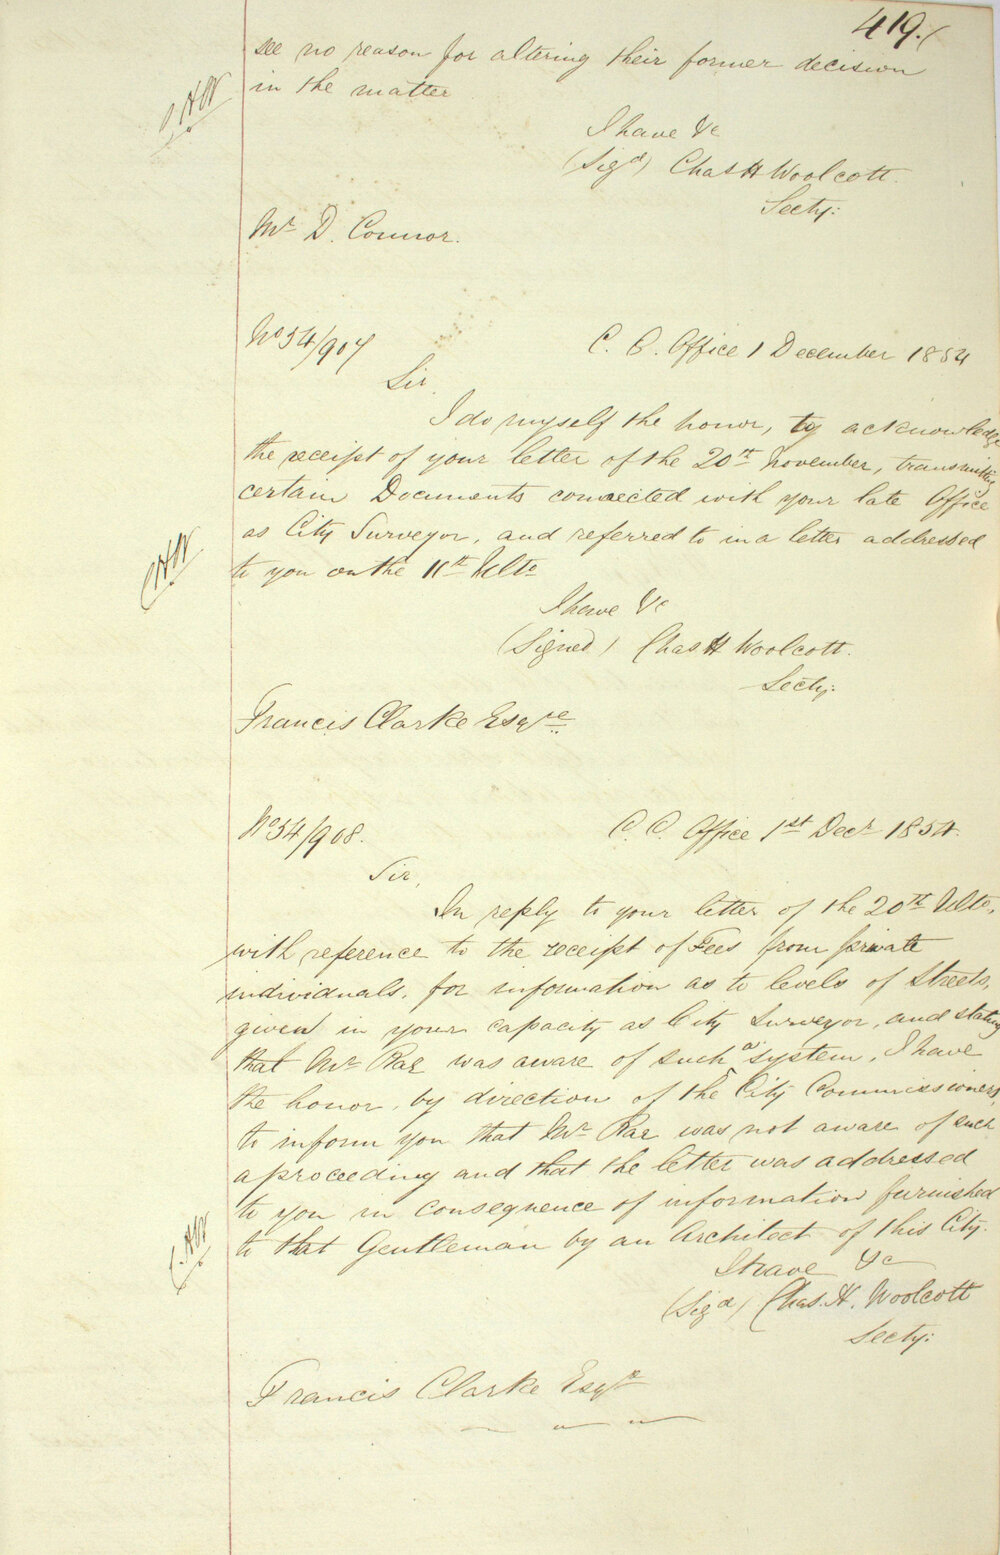 419.
see no reason for altering their former decision
in the matter
CHW
I have &c
(Sigd) Chas H Woolcott.
Secty:
Mr D. Connor.
No 54/907
C. C. Office 1 December 1854
Sir
I do myself the honor, to acknowledge
the receipt of your letter of the 20th November, transmitting
certain Documents connected with your late Office
as City Surveyor, and referred to in a letter addressed
CHW
to you on the 11th Ulto
I have &c
(Signed) Chas H Woolcott.
Secty:
Francis Clarke Esqre
No 54/908.
C. C. Office 1st Decr 1854.
Sir,
In reply to your letter of the 20th Ulto,
with reference to the receipt of Fees from private
individuals, for information as to levels of Streets,
given in your capacity as City Surveyor, and stating
that Mr Rae was aware of such a system, I have
the honor, by direction of the City Commissioners,
to inform you that Mr Rae was not aware of such
a proceeding and that the letter was addressed
to you in consequence of information furnished
CHW
to that Gentleman by an Architect of this City.
I have &c
(Sigd) Chas. H. Woolcott
Secty:
Francis Clarke Esqre